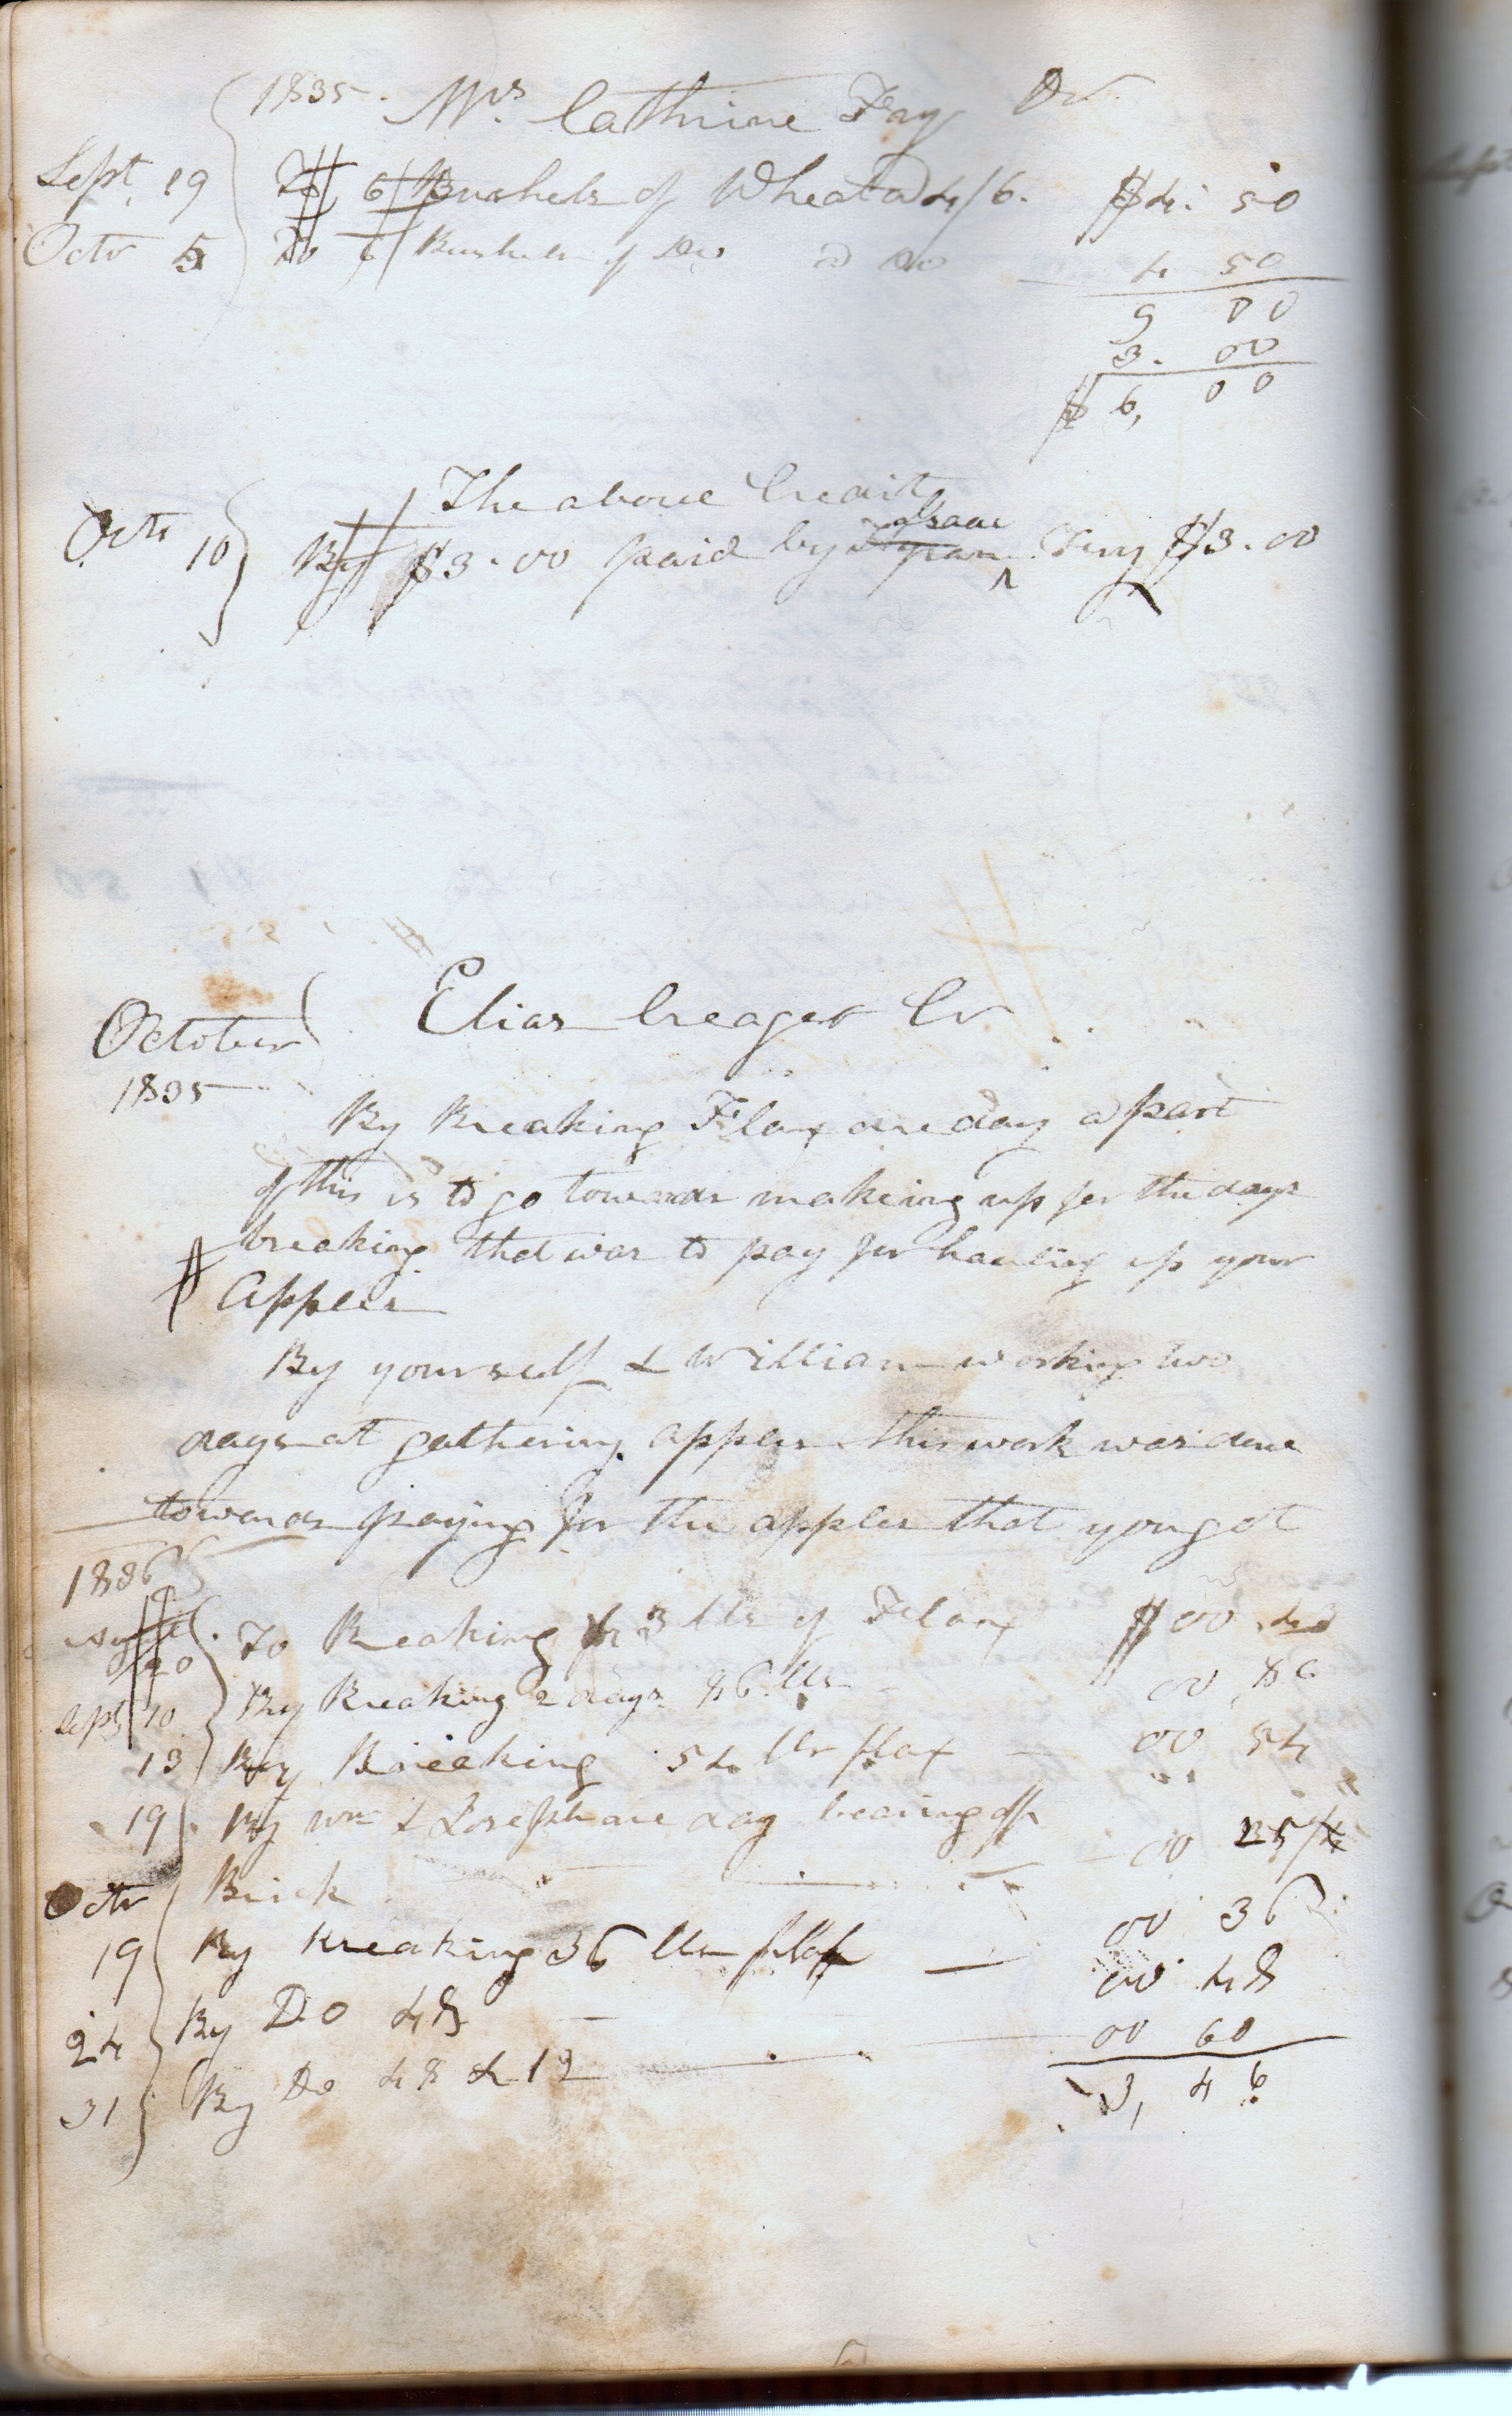 1835. Mrs Cathrine Fay Dr
Sept, 19 To 6 Bushels of Wheat @ 4/6. $4. 50
Octr 5 To 6 Bushels of Do @ Do 4 50
9 00
3. 00
$ 6, 00
The above Credit
Isaac
Octr 10 By $3.00 paid by Fay $3.00
Elias Creager Cr
October
1835
By Breaking Flax one day a part
of this is to go towards makeing up for the days
breaking that was to pay for hauling up your
Apples
By yourself & William working two
days at gathering apples this work was done
towards paying for the apples that you got
1836
20 To Breaking 43 lbs of Flax $00.43
Sept 10 By Breaking 2 days 86 lbs 00,86
13 By Breaking 54 lbs flax 00 54
19 By Wm & Joseph one day bearing off
Brick 00 25
Octr
19 By Breaking 36 lbs flax 00 36
24 By Do 48 00 48
31 By Do 48 & 12 00 60
3, 46